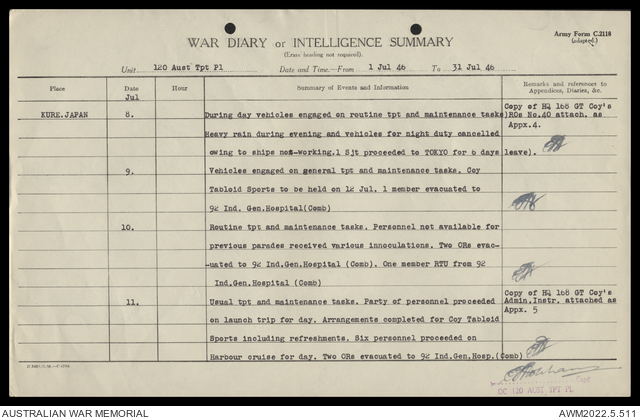 WAR DIARY or INTELLIGENCE SUMMARY
(Erase heading not required).
Army Form C.2118
(adapted.)
Unit 120 Aust Tpt Pl Date and Time.—From 1 Jul 46 To 31 Jul 46
Place Date Hour Summary of Events and Information Remarks and references to
Appendices, Diaries, &c.
Jul
KURE.JAPAN 8. During day vehicles engaged on routine tpt and maintenance tasks)
Copy of HQ 168 GT Coy's
ROs No.40 attach. as
Appx.4.
Heavy rain during evening and vehicles for night duty cancelled
owing to ships not working.1 Sjt proceeded to TOKYO for 6 days leave).
9. Vehicles engaged on general tpt and maintenance tasks. Coy
Tabloid Sports to be held on 12 Jul. 1 member evacuated to
92 Ind. Gen.Hospital(Comb)
10. Routine tpt and maintenance tasks. Personnel not available for
previous parades received various innoculations. Two ORs evac-
-uated to 92 Ind.Gen.Hospital (Comb). One member RTU from 92
Ind.Gen.Hospital (Comb)
11. Usual tpt and maintenance tasks. Party of personnel proceeded
Copy of HQ 168 GT Coy's
Admin.Instr. attached as
Appx. 5
on launch trip for day. Arrangements completed for Coy Tabloid
Sports including refreshments. Six personnel proceeded on
Harbour cruise for day. Two ORs evacuated to 92 Ind.Gen.Hosp.(Comb)
Capt
OC 120 AUST TPT PL
AUSTRALIAN WAR MEMORIAL
AWM2022.5.511